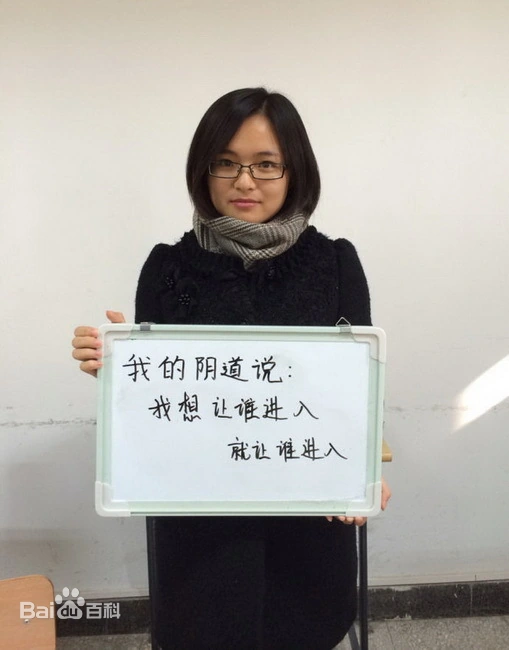 我的阴道说:
我想让谁进入
就让谁进入
Baidu百科